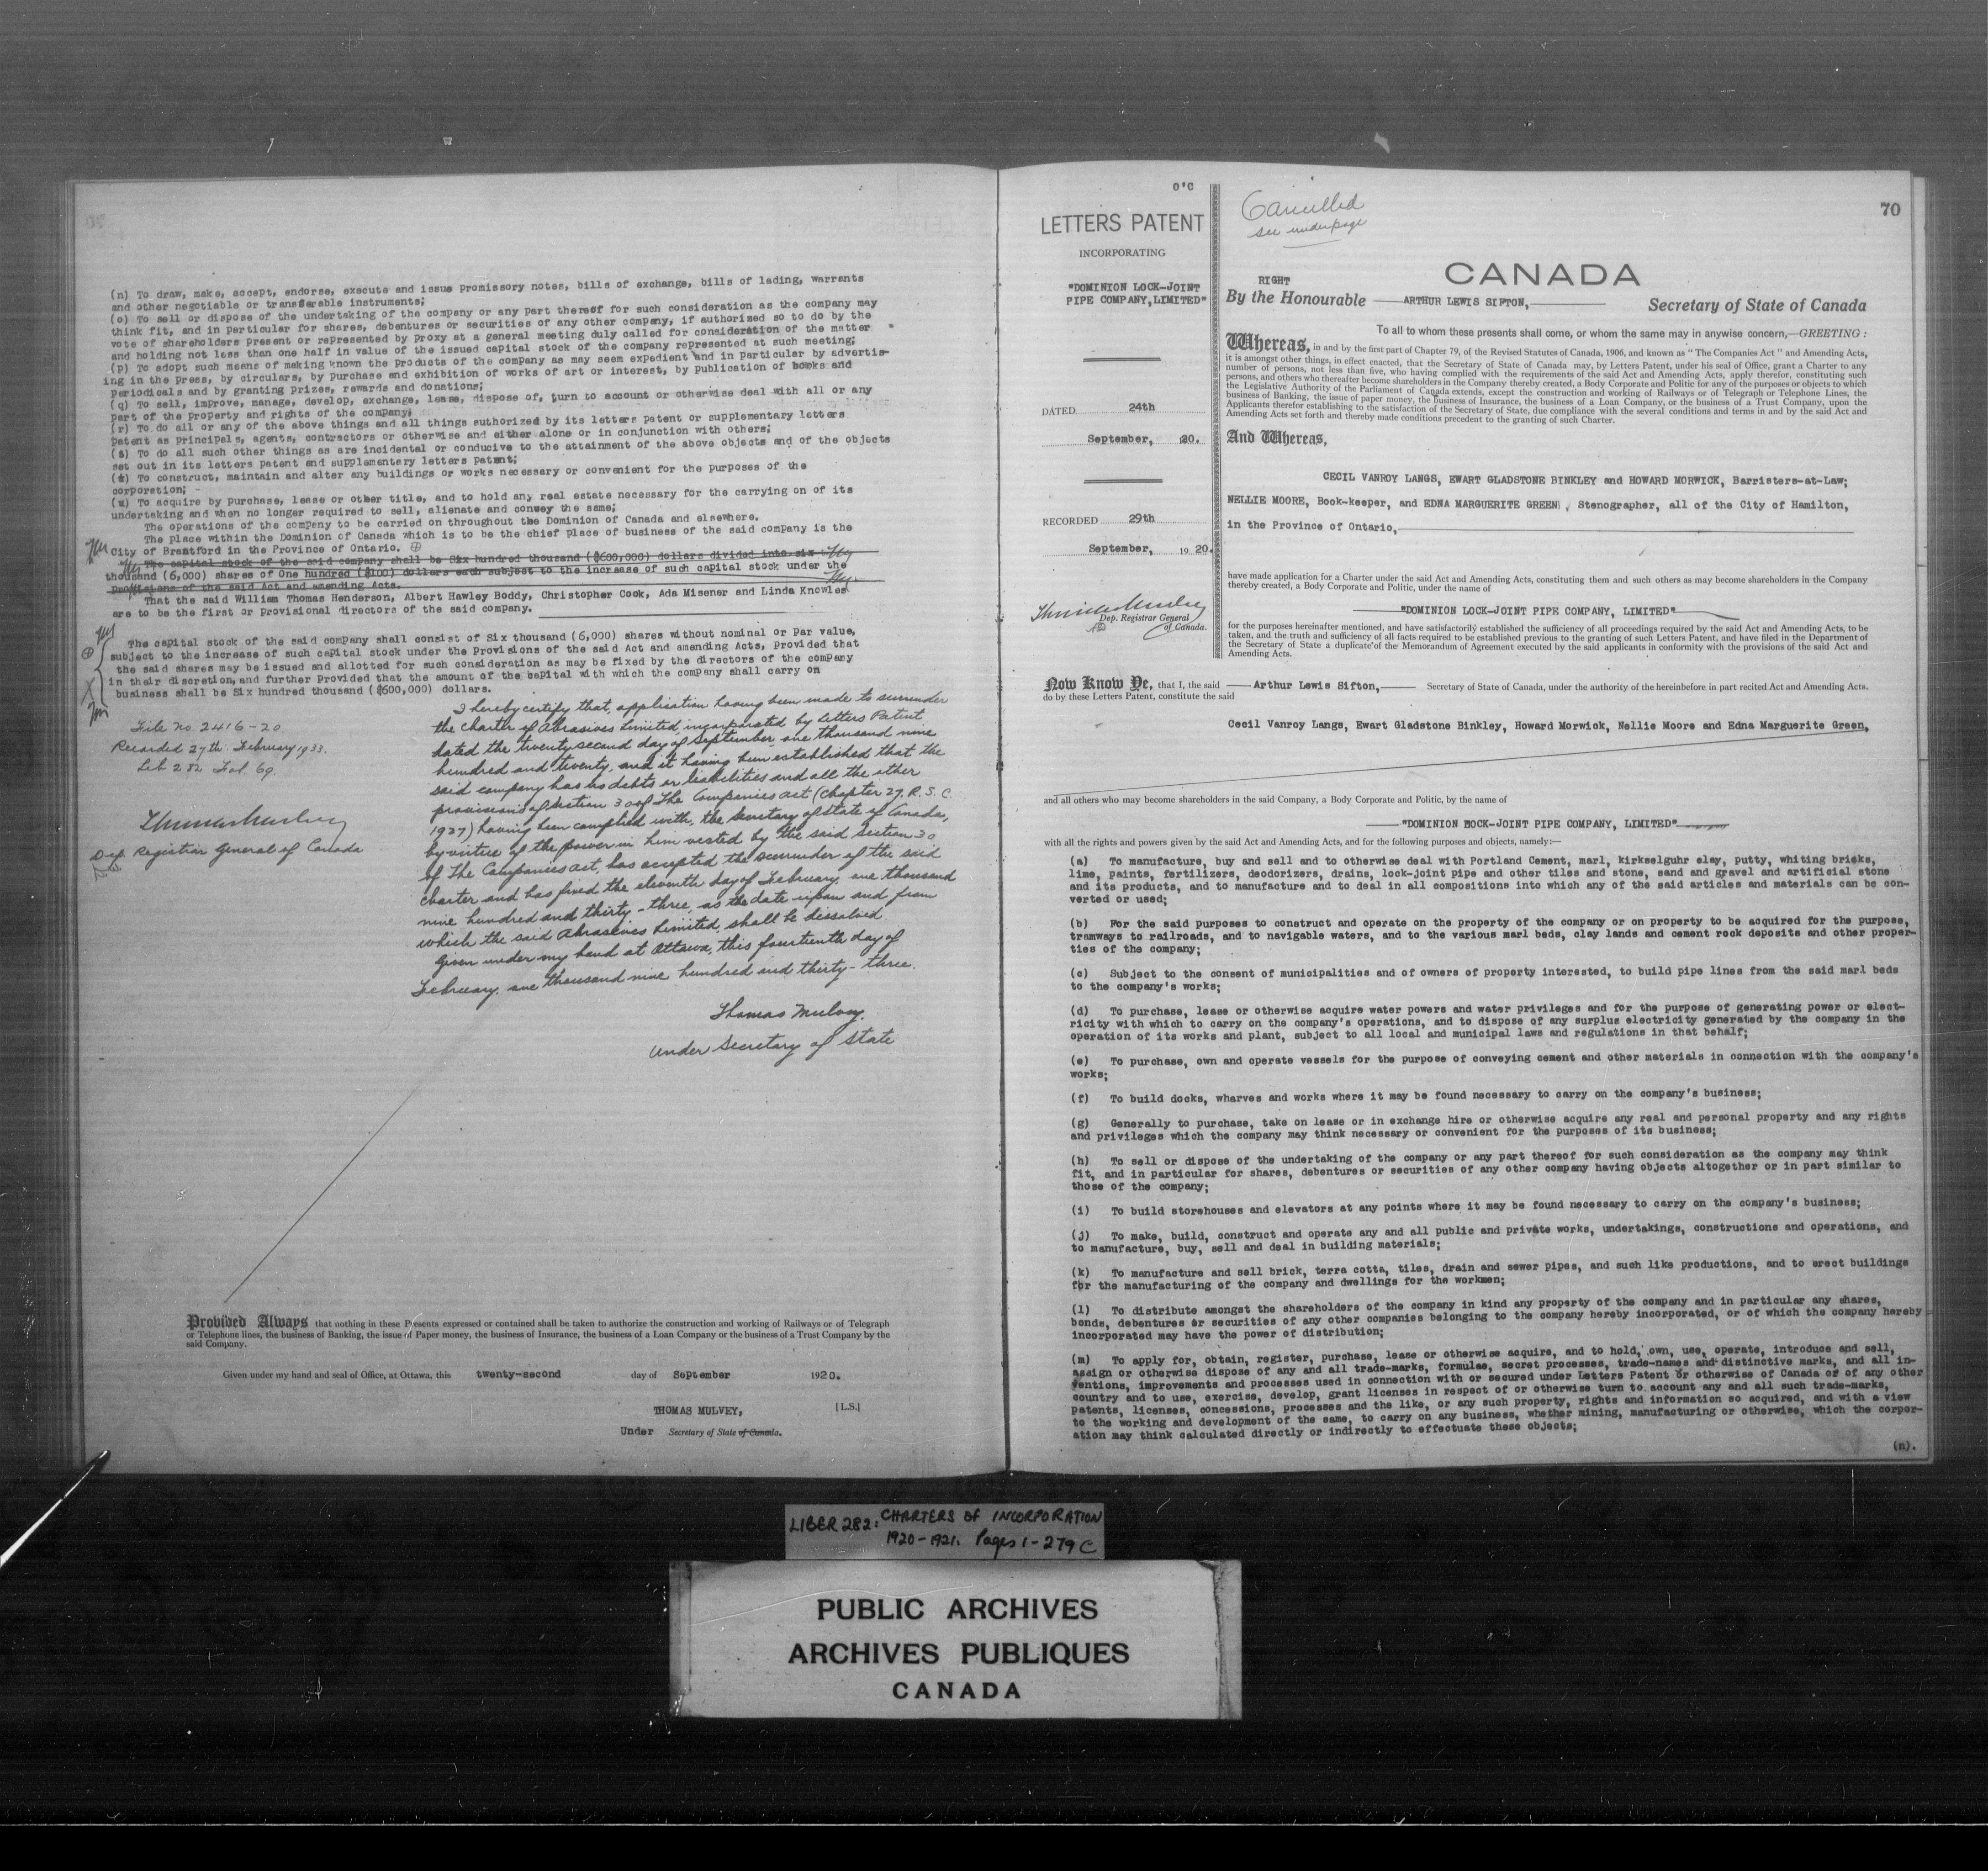 (n) To draw, make, accept, endorse, execute and issue promissory notes, bills of exchange, bills of lading, warrants
and other negotiable or transferable instruments;
(o) To sell or dispose of the undertaking of the company or any part thereof for such consideration as the company may
think fit, and in particular for shares, debentures or securities of any other company, if authorised so to do by the
vote of shareholders present or represented by proxy at a general meeting duly called for consideration of the matter
and holding not less than one half in value of the issued capital stock of the company represented at such meeting;
(p) To adopt such means of making known the products of the company as may seem expedient and in particular by advertis-
ing in the press, by circulars, by purchase and exhibition of works of art or interest, by publication of books and
periodicals and by granting prizes, rewards and donations;
(q) To sell, improve, manage, develop, exchange, lease, dispose of, turn to account or otherwise deal with all or any
part of the property and rights of the company;
(r) To do all or any of the above things and all things authorized by its letters patent or supplementary letters
patent as principals, agents, contractors or otherwise and either alone or in conjunction with others;
(s) To do all such other things as are incidental or conducive to the attainment of the above objects and of the objects
set out in its letters patent and supplementary letters patent;
(t) To construct, maintain and alter any buildings or works necessary or convenient for the purposes of the
corporation;
(u) To acquire by purchase, lease or other title, and to hold any real estate necessary for the carrying on of its
undertaking and when no longer required to sell, alienate and convey the same;
The operations of the company to be carried on throughout the Dominion of Canada and elsewhere.
The place within the Dominion of Canada which is to be the chief place of business of the said company is the
City of Brantford in the Province of Ontario.
The capital stock of the said company shall be Six hundred thousand ($600,000) dollars divided into six
thousand (6,000) shares of One hundred ($100) dollars each subject to the increase of such capital stock under the
provisions of the said Act and amending Acts.
That the said William Thomas Henderson, Albert Hawley Boddy, Christopher Cook, Ada Misener and Linda Knowles
are to be the first or provisional directors of the said company.
The capital stock of the said company shall consist of Six thousand (6,000) shares without nominal or par value,
subject to the increase of such capital stock under the provisions of the said Act and amending Acts, Provided that
the said shares may be issued and allotted for such consideration as may be fixed by the directors of the company
in their discretion, and further provided that the amount of the capital with which the company shall carry on
business shall be Six hundred thousand ($600,000) dollars.
File no. 2416-20
Recorded 27th. February 1933.
Lib 282 Fol. 69.
Thomas Mulvey
Dep. Registrar General of Canada
I hereby certify that, application having been made to surrender
the charter of Abrasives Limited, incorporated by Letters Patent
dated the twenty second day of September, one thousand nine
hundred and twenty, and it having been established that the
said company has no debts or liabilities and all the other
provisions of section 30 of The Companies Act (Chapter 27, R.S.C.
1927) having been complied with, the Secretary of State of Canada,
by virtue of the power in him vested by the said Section 30
of The Companies Act, has accepted the surrender of the said
charter and has fixed the eleventh day of February, one thousand
nine hundred and thirty-three, as the date upon and from
which the said Abrasives Limited, shall be dissolved.
Given under my hand at Ottawa, this fourteenth day of
February, one thousand nine hundred and thirty-three.
Thomas Mulvey.
Under Secretary of State
Provided Always that nothing in these Presents expressed or contained shall be taken to authorize the construction and working of Railways or of Telegraph
or Telephone lines, the business of Banking, the issue of Paper money, the business of Insurance, the business of a Loan Company or the business of a Trust Company by the
said Company.
Given under my hand and seal of Office, at Ottawa, this twenty-second day of September 1920.
THOMAS MULVEY, [L.S.]
Under Secretary of State of Canada.
O'C
LETTERS PATENT
INCORPORATING
"DOMINION LOCK-JOINT
PIPE COMPANY, LIMITED"
DATED 24th
September, 20.
RECORDED 29th
September, 1920.
Thomas Mulvey
Dep. Registrar General
of Canada.
Cancelled
see underpage
70
CANADA
RIGHT
By the Honourable ARTHUR LEWIS SIFTON, Secretary of State of Canada
To all to whom these presents shall come, or whom the same may in anywise concern,—GREETING:
Whereas, in and by the first part of Chapter 79, of the Revised Statutes of Canada, 1906, and known as "The Companies Act" and Amending Acts,
it is amongst other things, in effect enacted, that the Secretary of State of Canada may, by Letters Patent, under his seal of Office, grant a Charter to any
number of persons, not less than five, who having complied with the requirements of the said Act and Amending Acts, apply therefor, constituting such
persons, and others who thereafter become shareholders in the Company thereby created, a Body Corporate and Politic for any of the purposes or objects to which
the Legislative Authority of the Parliament of Canada extends, except the construction and working of Railways or of Telegraph or Telephone Lines, the
business of Banking, the issue of paper money, the business of Insurance, the business of a Loan Company, or the business of a Trust Company, upon the
Applicants therefor establishing to the satisfaction of the Secretary of State, due compliance with the several conditions and terms in and by the said Act and
Amending Acts set forth and thereby made conditions precedent to the granting of such Charter.
And Whereas,
CECIL VANROY LANGS, EWART GLADSTONE BINKLEY and HOWARD MORWICK, Barristers-at-Law;
NELLIE MOORE, Book-keeper, and EDNA MARGUERITE GREEN, Stenographer, all of the City of Hamilton,
in the Province of Ontario,
have made application for a Charter under the said Act and Amending Acts, constituting them and such others as may become shareholders in the Company
thereby created, a Body Corporate and Politic, under the name of
"DOMINION LOCK-JOINT PIPE COMPANY, LIMITED"
for the purposes hereinafter mentioned, and have satisfactorily established the sufficiency of all proceedings required by the said Act and Amending Acts, to be
taken, and the truth and sufficiency of all facts required to be established previous to the granting of such Letters Patent, and have filed in the Department of
the Secretary of State a duplicate of the Memorandum of Agreement executed by the said applicants in conformity with the provisions of the said Act and
Amending Acts.
Now Know Ye, that I, the said Arthur Lewis Sifton, Secretary of State of Canada, under the authority of the hereinbefore in part recited Act and Amending Acts.
do by these Letters Patent, constitute the said
Cecil Vanroy Langs, Ewart Gladstone Binkley, Howard Morwick, Nellie Moore and Edna Marguerite Green,
and all others who may become shareholders in the said Company, a Body Corporate and Politic, by the name of
"DOMINION BOCK-JOINT PIPE COMPANY, LIMITED"
with all the rights and powers given by the said Act and Amending Acts, and for the following purposes and objects, namely:—
(a) To manufacture, buy and sell and to otherwise deal with Portland Cement, marl, kirkselguhr clay, putty, whiting bricks,
lime, paints, fertilizers, deodorizers, drains, lock-joint pipe and other tiles and stone, sand and gravel and artificial stone
and its products, and to manufacture and to deal in all compositions into which any of the said articles and materials can be con-
verted or used;
(b) For the said purposes to construct and operate on the property of the company or on property to be acquired for the purpose,
tramways to railroads, and to navigable waters, and to the various marl beds, clay lands and cement rock deposits and other proper-
ties of the company;
(c) Subject to the consent of municipalities and of owners of property interested, to build pipe lines from the said marl beds
to the company's works;
(d) To purchase, lease or otherwise acquire water powers and water privileges and for the purpose of generating power or elect-
ricity with which to carry on the company's operations, and to dispose of any surplus electricity generated by the company in the
operation of its works and plant, subject to all local and municipal laws and regulations in that behalf;
(e) To purchase, own and operate vessels for the purpose of conveying cement and other materials in connection with the company's
works;
(f) To build docks, wharves and works where it may be found necessary to carry on the company's business;
(g) Generally to purchase, take on lease or in exchange hire or otherwise acquire any real and personal property and any rights
and privileges which the company may think necessary or convenient for the purposes of its business;
(h) To sell or dispose of the undertaking of the company or any part thereof for such consideration as the company may think
fit, and in particular for shares, debentures or securities of any other company having objects altogether or in part similar to
those of the company;
(i) To build storehouses and elevators at any points where it may be found necessary to carry on the company's business;
(j) To make, build, construct and operate any and all public and private works, undertakings, constructions and operations, and
to manufacture, buy, sell and deal in building materials;
(k) To manufacture and sell brick, terra cotta, tiles, drain and sewer pipes, and such like productions, and to erect buildings
for the manufacturing of the company and dwellings for the workmen;
(l) To distribute amongst the shareholders of the company in kind any property of the company and in particular any shares,
bonds, debentures or securities of any other companies belonging to the company hereby incorporated, or of which the company hereby
incorporated may have the power of distribution;
(m) To apply for, obtain, register, purchase, lease or otherwise acquire, and to hold, own, use, operate, introduce and sell,
assign or otherwise dispose of any and all trade-marks, formulae, secret processes, trade-names and distinctive marks, and all in-
ventions, improvements and processes used in connection with or secured under Letters Patent or otherwise of Canada or of any other
country and to use, exercise, develop, grant licenses in respect of or otherwise turn to account any and all such trade-marks,
patents, licenses, concessions, processes and the like, or any such property, rights and information so acquired, and with a view
to the working and development of the same, to carry on any business, whether mining, manufacturing or otherwise, which the corpor-
ation may think calculated directly or indirectly to effectuate these objects;
(n).
LIBER 282: CHARTERS OF INCORPORATION
1920-1921. Pages 1-279C
PUBLIC ARCHIVES
ARCHIVES PUBLIQUES
CANADA